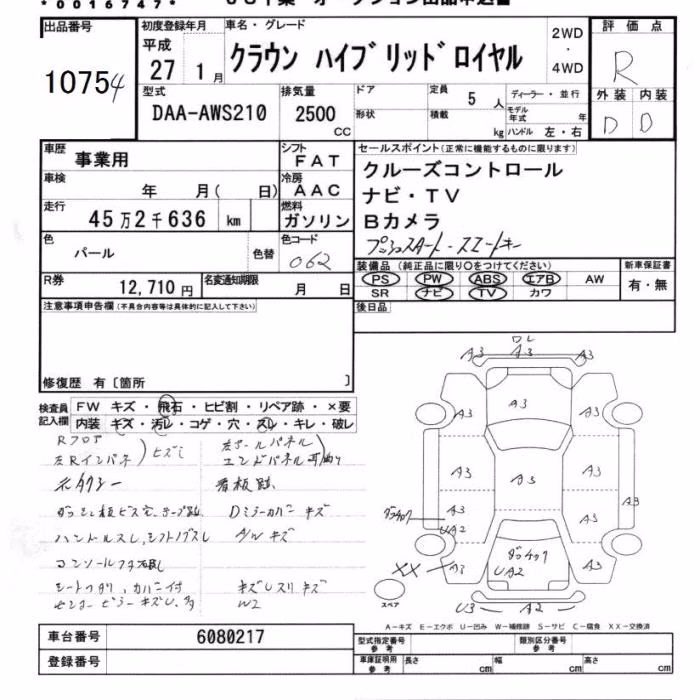 * 0016747 *
出品番号
10754
初度登録年月
平成
27 1月
車名・グレード
クラウン ハイブリッドロイヤル
2WD
・
4WD
評価点
R
外装 内装
D D
型式
DAA-AWS210
排気量
2500
CC
ドア
形状
定員
5 人
積載
kg
ディーラー・並行
モデル年式 年
ハンドル 左・右
車歴
事業用
シフト
FAT
車検
年 月( 日)
冷房
AAC
走行
45万2千636 km
燃料
ガソリン
色
パール
色替
色コード
062
R券
12,710円
名変通知期限
月 日
セールスポイント(正常に機能するものに限ります)
クルーズコントロール
ナビ・TV
Bカメラ
プッシュスタート・スマートキー
装備品 (純正品に限り○をつけてください)
PS PW ABS エアB AW
SR ナビ TV カワ
新車保証書
有・無
後日品
注意事項申告欄(不具合内容等は具体的に記入して下さい)
修復歴 有〔箇所 〕
検査員
記入欄
FW キズ・飛石・ヒビ割・リペア跡・×要
内装 キズ・汚レ・コゲ・穴・スレ・キレ・破レ
Rフロア
左Rインパネ
ヒズミ
左ホールパネル
エンドパネル
元タクシー
看板跡
Dミラーカバー キズ
ハンドルスレ、シフトノブスレ
A/W キズ
コンソールフタ
カバー付
センターピラーキズ
W2
A3 A3 A3
A3 A3
A3 A3 A3
A3 A3 A3
UA2
XX A3 UA2 A3
U3 A2
スペア
A－キズ E－エクボ U－凹み W－補修跡 S－サビ C－腐食 XX－交換済
車台番号
6080217
登録番号
型式指定番号
参考
類別区分番号
参考
車庫証明用
参考
長さ cm
幅 cm
高さ cm